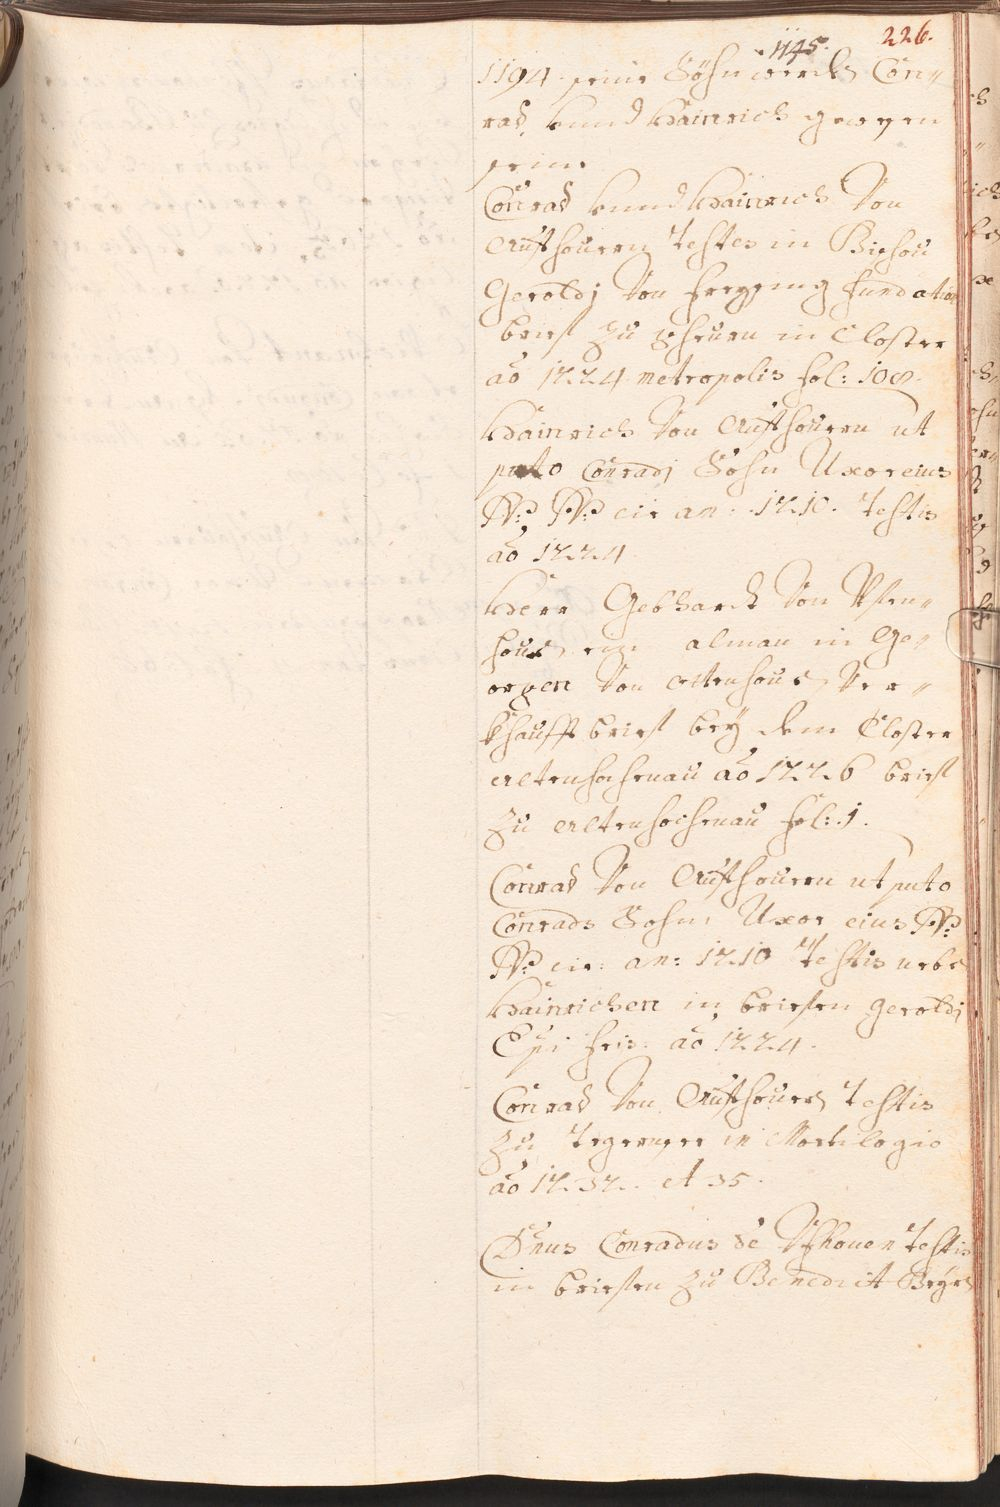 1145. 226.
1194. seine Söhn werdts Con„
rad, unnd Hainrich gewesen
sein.
Conrad unnd Hainrich Von
Aufhouen testes in Bischou
Geroldj Von Freysing fundation
brief zu Scheurn in Closter
aō 1224 metropolis fol: 108.
Hainrich Von Aufhouen ut
puto Conradj Sohn Uxor eius
N: N: cir an: 1210. testis
aō 1224.
Herr Gebhardt Von
ein alman in Ge„
orgen Von Ver„
khauff brief bey dem Closter
Altenhochenau aō 1226 brief
zu Altenhochenau fol: 1.
Conrad Von Aufhouen ut puto
Conrads Sohn Uxor eius N:
N: cir: an: 1210 testis nebe
Hainrichen in briefen Geroldj
Epi fris: aō 1224.
Conrad Von Aufhouen testis
zu Tegernsee in
aō 1232. et 35.
Dnus Conradus de Ufhouen testis
in briefen zu Benedict Beyrn